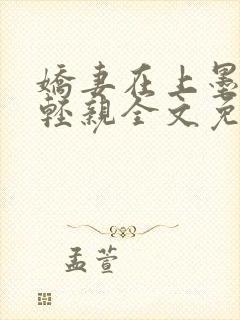 嬌妻在上墨
輕親全文免
孟萱